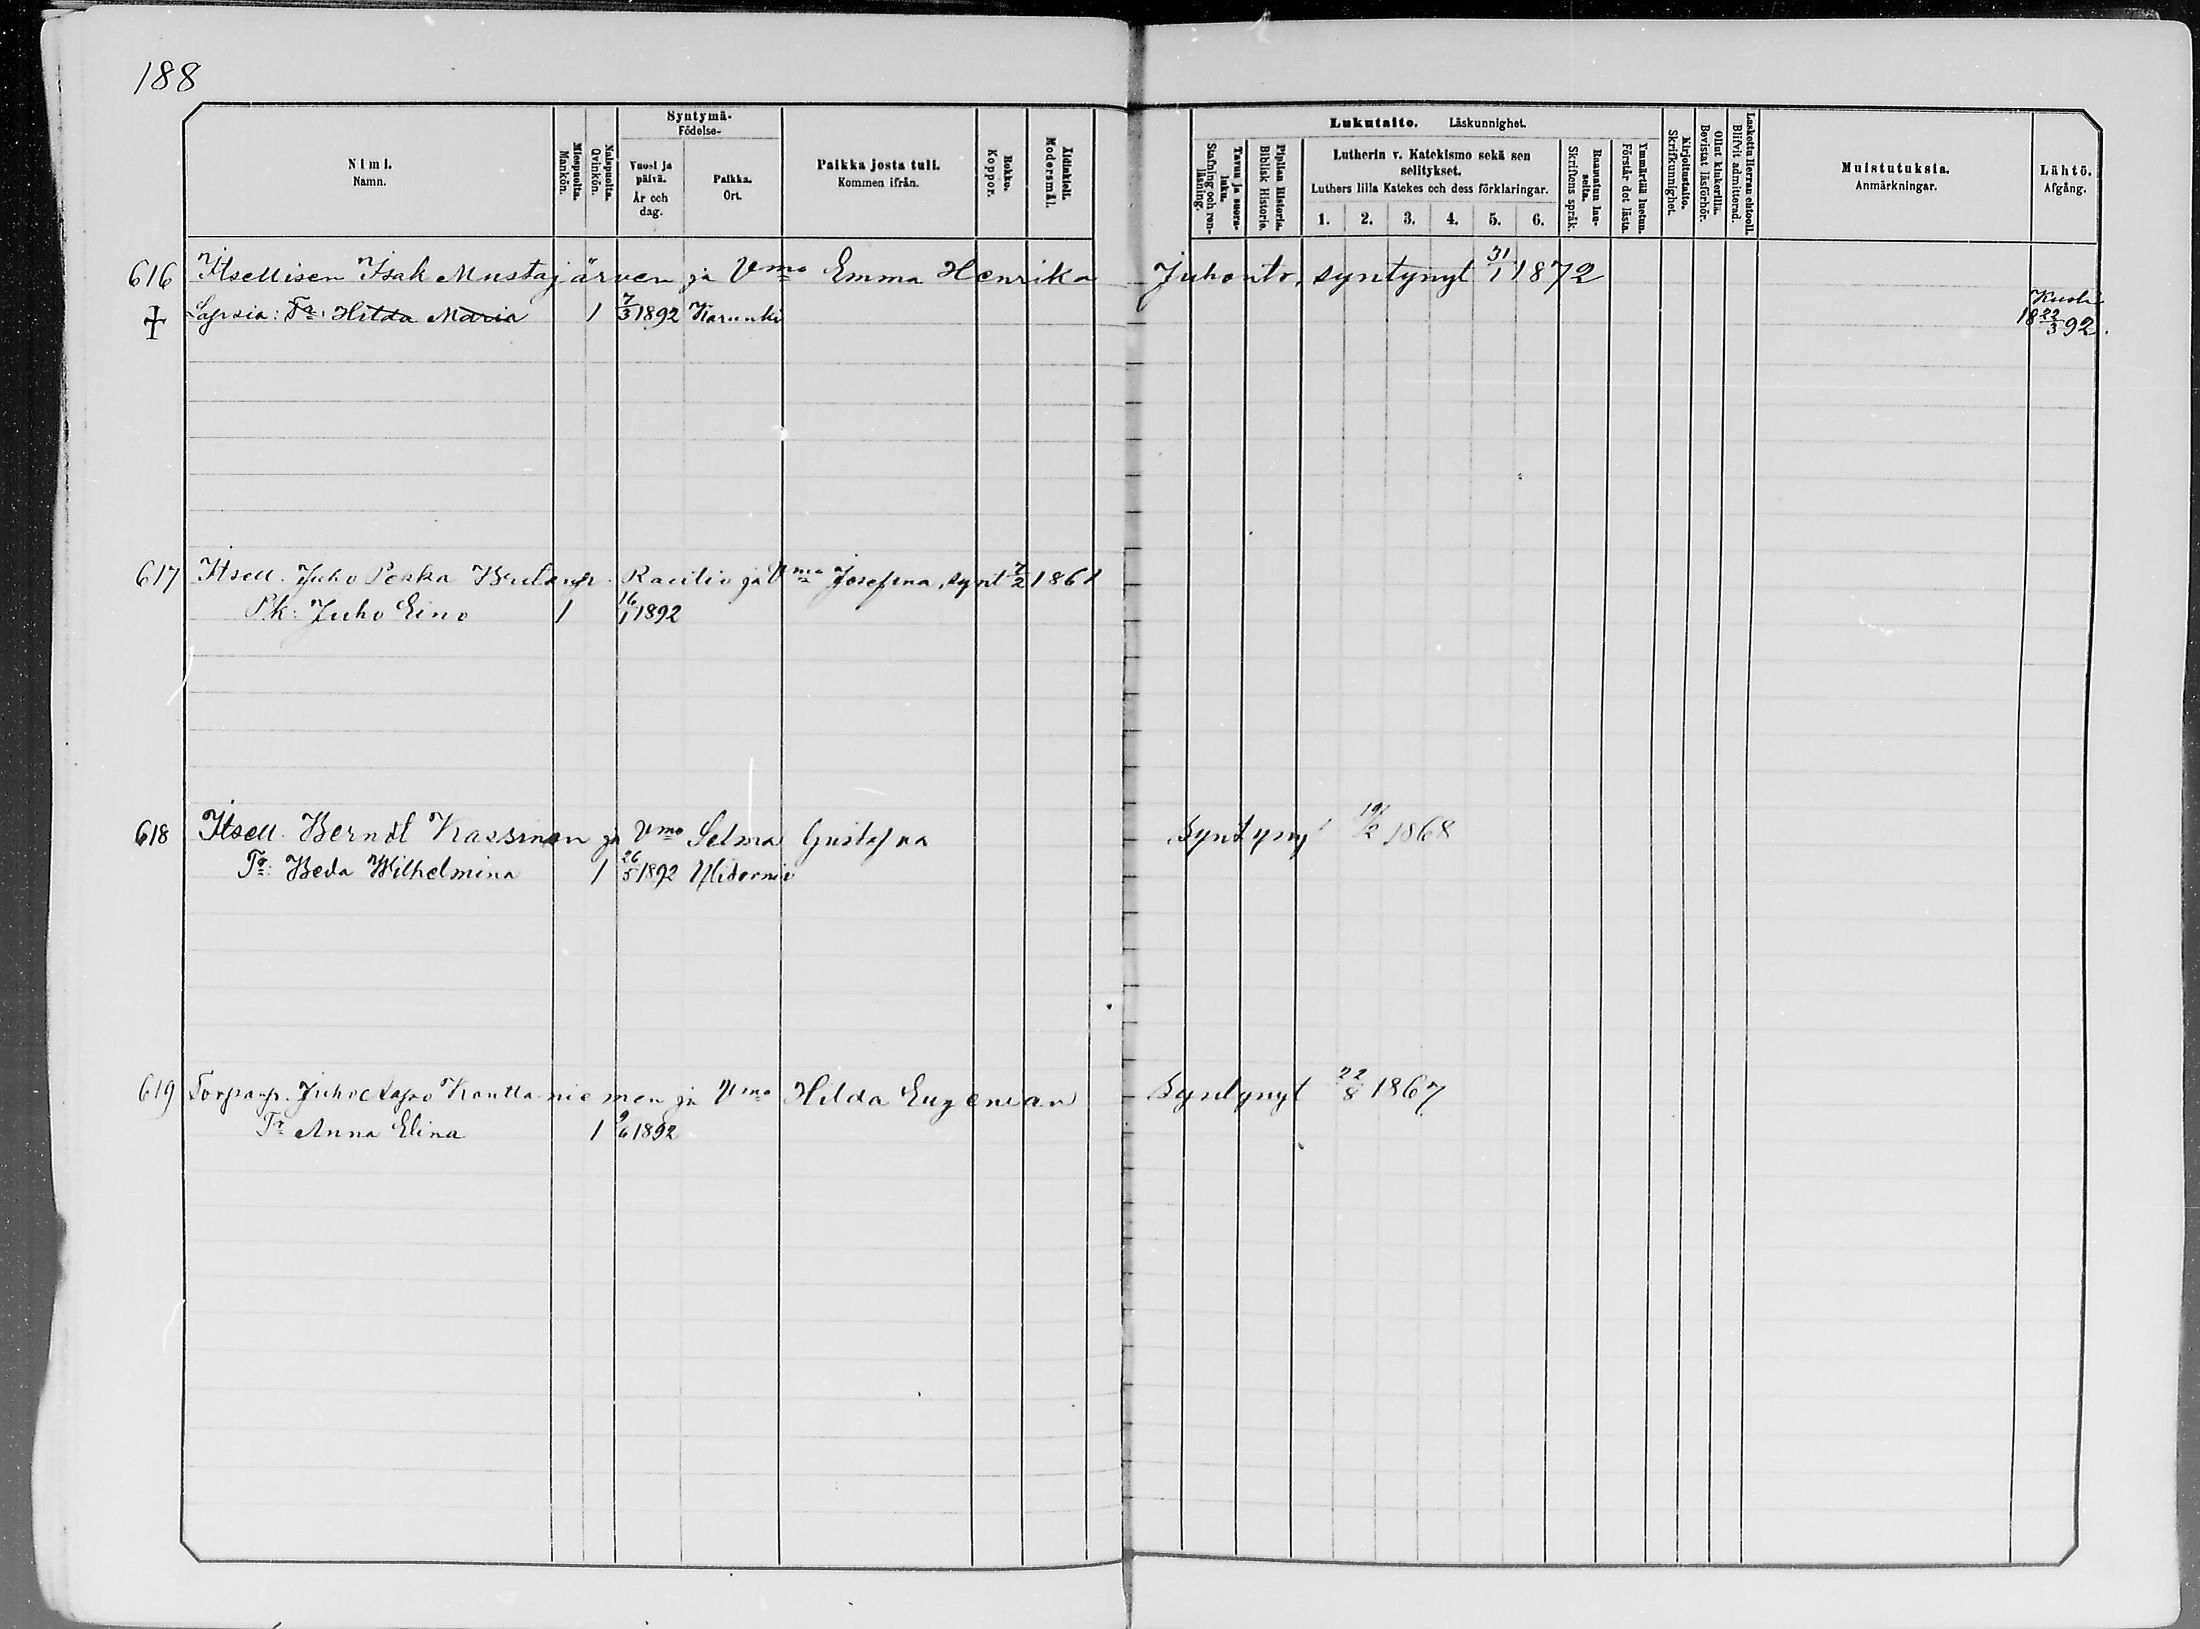 188
Syntymä-
Födelse-
Nimi.
Namn.
Miespuolta.
Mankön.
Naispuolta.
Qvinkön.
Vuosi ja päivä.
År och dag.
Paikka.
Ort.
Paikka josta tuli.
Kommen ifrån.
Rokko.
Koppor.
Äidinkieli.
Modersmål.
Lukutaito. Läskunnighet.
Tavuu ja suora-luku.
Stafning och ren-läsning.
Piplian Historia.
Biblisk Historie.
Lutherin v. Katekismo sekä sen selitykset.
Luthers lilla Katekes och dess förklaringar.
1. 2. 3. 4. 5. 6.
Raamatun lau-seita.
Skriftens språk.
Ymmärtää luetun.
Förstår det lästa.
Kirjoitustaito.
Skrifkunnighet.
Ollut kinkerillä.
Bevistat läsförhör.
Laskettu Herran ehtooll.
Blifvit admitterad.
Muistutuksia.
Anmärkningar.
Lähtö.
Afgång.
616 Itsellisen Isak Mustajärven ja Vmo Emma Henrika Juhontr, syntynyt 31/1 1872
Lapsia: Tr: Hilda Maria 1 7/3 1892 Karunki Kuoli
18 22/3 92.
617 Itsell. Juho Pekka ja Vmo Josefina, synt 7/2 1861
Pk: Juho Eino 1 16/1 1892
618 Itsell. Berndt Kassinen ja Vmo Selma Gustafva syntyny 19/2 1868
Tr: Beda Wilhelmina 1 26/5 1892 Ylitornio
619 Torpanp. Juho Aapo Kauttaniemen ja Vmo Hilda Eugenian Syntynyt 22/8 1867
Tr Anna Elina 1 9/6 1892